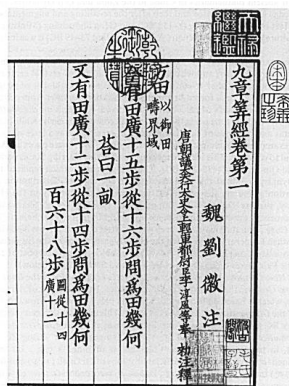 九章筭經卷第一
魏劉徽注
唐朝議大夫行太史令上輕車都尉臣李淳風等奉 勅注釋
方田 以御田疇界域
有田廣十五步從十六步問爲田幾何
荅曰一畝
又有田廣十二步從十四步問爲田幾何
百六十八步 圖從十四廣十二
天祿繼鑑
乾隆御覽之寶